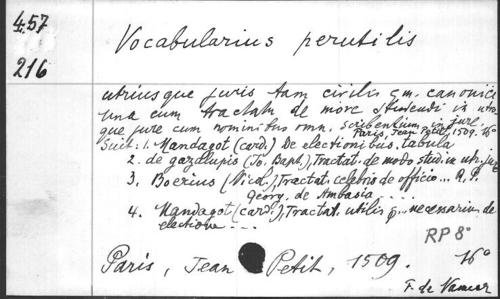 457
216
Vocabularius perutilis
utriusque juris tam civilis qm. canonici
una cum tractatu de more studendi in utro
que jure cum nominibus omn. scribentium in jure.
Paris, Jean Petit, 1509. 16°
Suit: 1. Mandagot (card.) De electionibus. tabula
2. de gazalupis (Jo. Bapt.), Tractat. de modo stud. in utr. jure
3. Boerius (Nicol.), Tractat. celebris de officio... R. P.
Georg. de Ambasia ....
4. Mandagot (card.), Tractat. utilis p... necessarius de
electione ...
RP 8°
Paris, Jean Petit, 1509. 16°